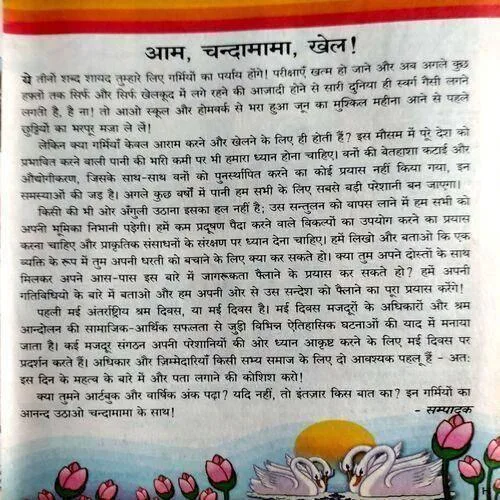 आम, चन्दामामा, खेल!
ये तीनों शब्द शायद तुम्हारे लिए गर्मियों का पर्याय होंगे! परीक्षाएँ खत्म हो जाने और अब अगले कुछ
हफ्तों तक सिर्फ और सिर्फ खेलकूद में लगे रहने की आज़ादी होने से सारी दुनिया ही स्वर्ग जैसी लगने
लगती है, है ना! तो आओ स्कूल और होमवर्क से भरा हुआ जून का मुश्किल महीना आने से पहले
छुट्टियों का भरपूर मजा ले लें!
लेकिन क्या गर्मियाँ केवल आराम करने और खेलने के लिए ही होती हैं? इस मौसम में पूरे देश को
प्रभावित करने वाली पानी की भारी कमी पर भी हमारा ध्यान होना चाहिए। वनों की बेतहाशा कटाई और
औद्योगीकरण, जिसके साथ-साथ वनों को पुनर्स्थापित करने का कोई प्रयास नहीं किया गया, इन
समस्याओं की जड़ है। अगले कुछ वर्षों में पानी हम सभी के लिए सबसे बड़ी परेशानी बन जाएगा।
किसी की भी ओर अँगुली उठाना इसका हल नहीं है; उस सन्तुलन को वापस लाने में हम सभी को
अपनी भूमिका निभानी पड़ेगी। हमें कम प्रदूषण पैदा करने वाले विकल्पों का उपयोग करने का प्रयास
करना चाहिए और प्राकृतिक संसाधनों के संरक्षण पर ध्यान देना चाहिए। हमें लिखो और बताओ कि एक
व्यक्ति के रूप में तुम अपनी धरती को बचाने के लिए क्या कर सकते हो। क्या तुम अपने दोस्तों के साथ
मिलकर अपने आस-पास इस बारे में जागरूकता फैलाने के प्रयास कर सकते हो? हमें अपनी
गतिविधियों के बारे में बताओ और हम अपनी ओर से उस सन्देश को फैलाने का पूरा प्रयास करेंगे!
पहली मई अंतर्राष्ट्रीय श्रम दिवस, या मई दिवस है। मई दिवस मजदूरों के अधिकारों और श्रम
आन्दोलन की सामाजिक-आर्थिक सफलता से जुड़ी विभिन्न ऐतिहासिक घटनाओं की याद में मनाया
जाता है। कई मजदूर संगठन अपनी परेशानियों की ओर ध्यान आकृष्ट करने के लिए मई दिवस पर
प्रदर्शन करते हैं। अधिकार और ज़िम्मेदारियाँ किसी सभ्य समाज के लिए दो आवश्यक पहलू हैं - अतः
इस दिन के महत्व के बारे में और पता लगाने की कोशिश करो!
क्या तुमने आर्टबुक और वार्षिक अंक पढ़ा? यदि नहीं, तो इंतज़ार किस बात का? इन गर्मियों का
आनन्द उठाओ चन्दामामा के साथ! - सम्पादक